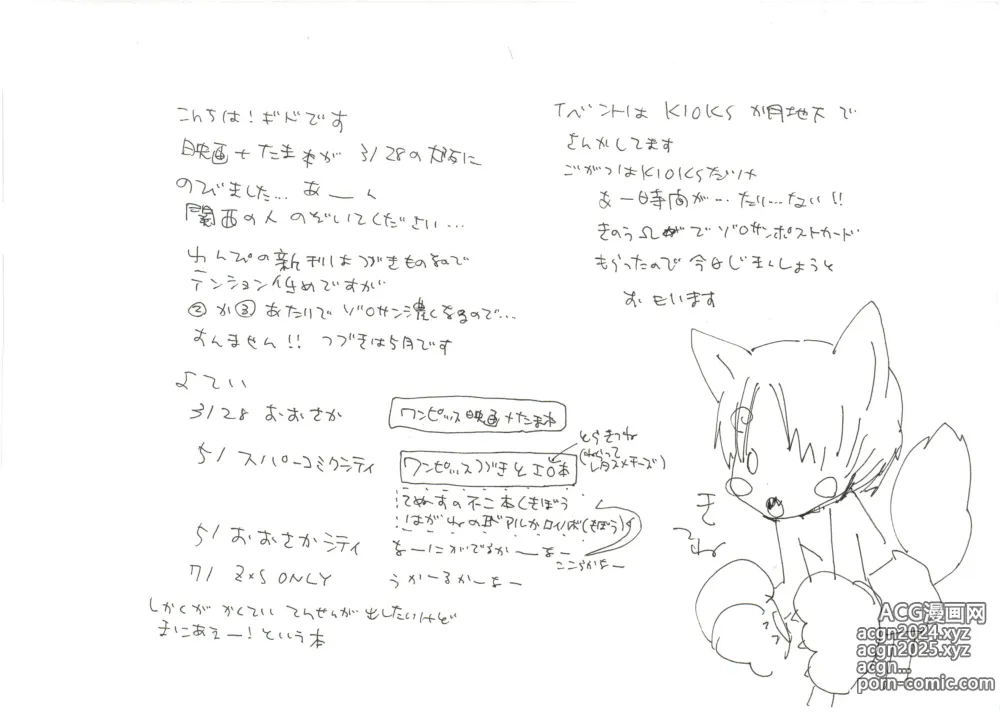 こんちは!ギドです
映画+たま本が 3/28の大阪に
のびました… あ――
関西の人 のぞいてください…
わんぴの新刊はつづきものなので
テンション低めですが
②か③あたりで ゾロサン濃くなるので…
すんません!! つづきは5月です
よてい
3/28 おおさか
ワンピッス映画+たま本
5/ スパーコミクシティ
ワンピッスつづきとエロ本
とらきつね
てぬすの不二本(きぼう
5/ おおさかシティ
なーにがでるか――なー
ここらかなー
7/ Z×S ONLY
うかーるかーなー
しかくが かくてい てんせんが 出したいけど
まにあえー!という本
イベントは K10K5 か月地下で
さんかしてます
ごがつはK10K5だけ
あー時間が…たり…ない!!
きのうΩ でゾロサンポストカード
もらったので 今はじまんしようと
おもいます
きつね
ACG漫画网
acgn2024.xyz
acgn2025.xyz
acgn...
porn-comic.com